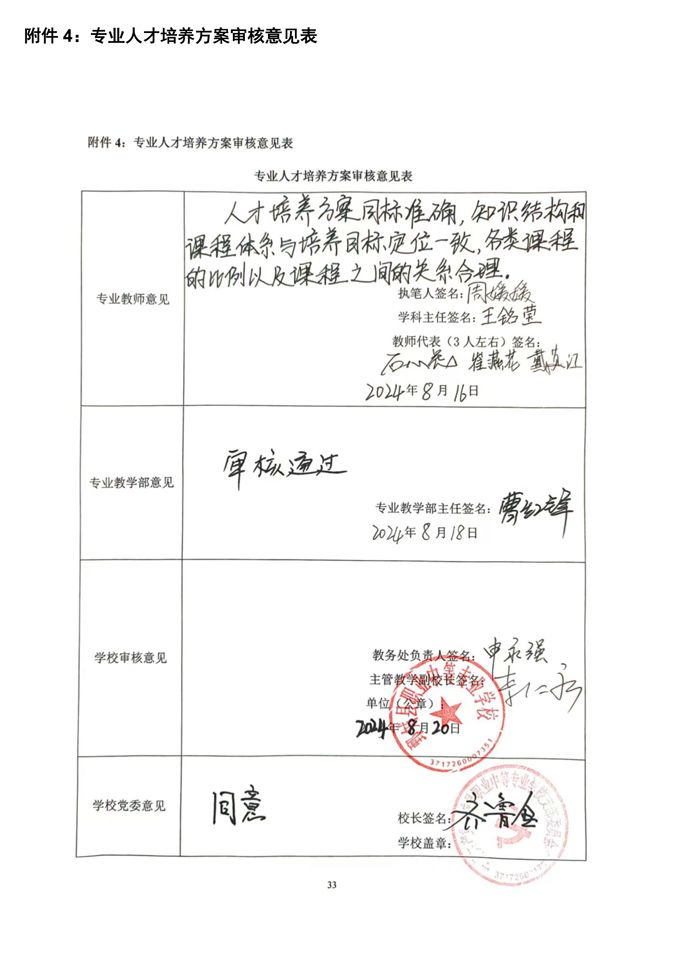 附件 4：专业人才培养方案审核意见表
附件 4：专业人才培养方案审核意见表
专业人才培养方案审核意见表
专业教师意见
人才培养方案目标准确，知识结构和
课程体系与培养目标定位一致，各类课程
的比例以及课程之间的关系合理。
执笔人签名：周媛媛
学科主任签名：王铭莹
教师代表（3 人左右）签名：
崔燕花
2024年 8 月 16日
专业教学部意见
审核通过
专业教学部主任签名：曹红锋
2024年 8 月 18日
学校审核意见
教务处负责人签名：申永强
主管教学副校长签名：
单位（公章）：
2024年 8月 20日
县职业中等专业学校
3717260007351
学校党委意见
同意
校长签名：齐鲁
学校盖章：
33